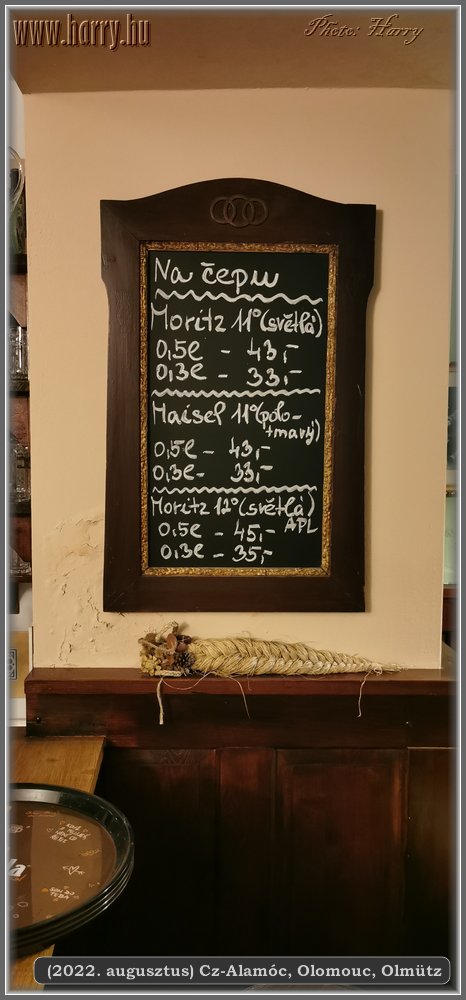 www.harry.hu
Photo: Harry
Na čepu
Moritz 11°(světlá)
0,5l - 43,-
0,3l - 33,-
Maisel 11°(polo-
tmavý)
0,5l - 43,-
0,3l - 33,-
Moritz 12°(světlá)
APL
0,5l - 45,-
0,3l - 35,-
(2022. augusztus) Cz-Alamóc, Olomouc, Olmütz